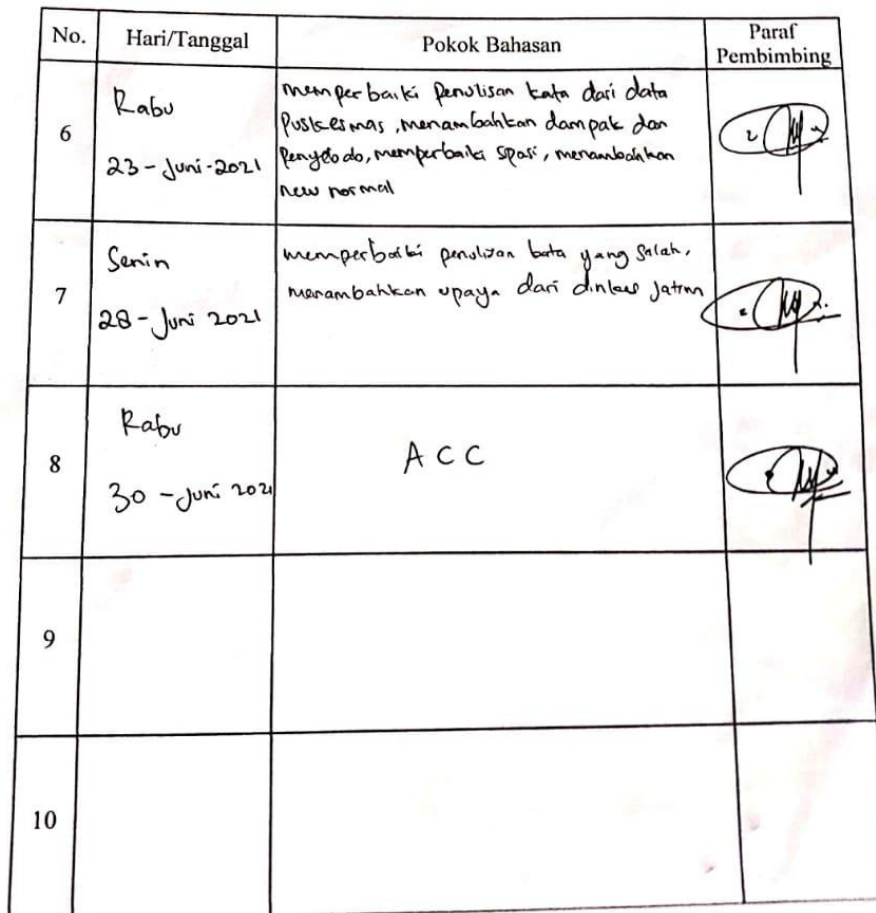 No. Hari/Tanggal Pokok Bahasan Paraf
Pembimbing
6
Rabu
23-Juni-2021
memperbaiki penulisan kata dari data
Puskesmas, menambahkan dampak dan
memperbaiki spasi, menambahkan
new normal
7
Senin
28-Juni 2021
memperbaiki penulisan kata yang salah,
menambahkan upaya dari dinkes Jatim
8
Rabu
30-Juni 2021
ACC
9
10